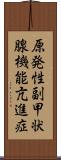 原発性副甲状
腺機能亢進症